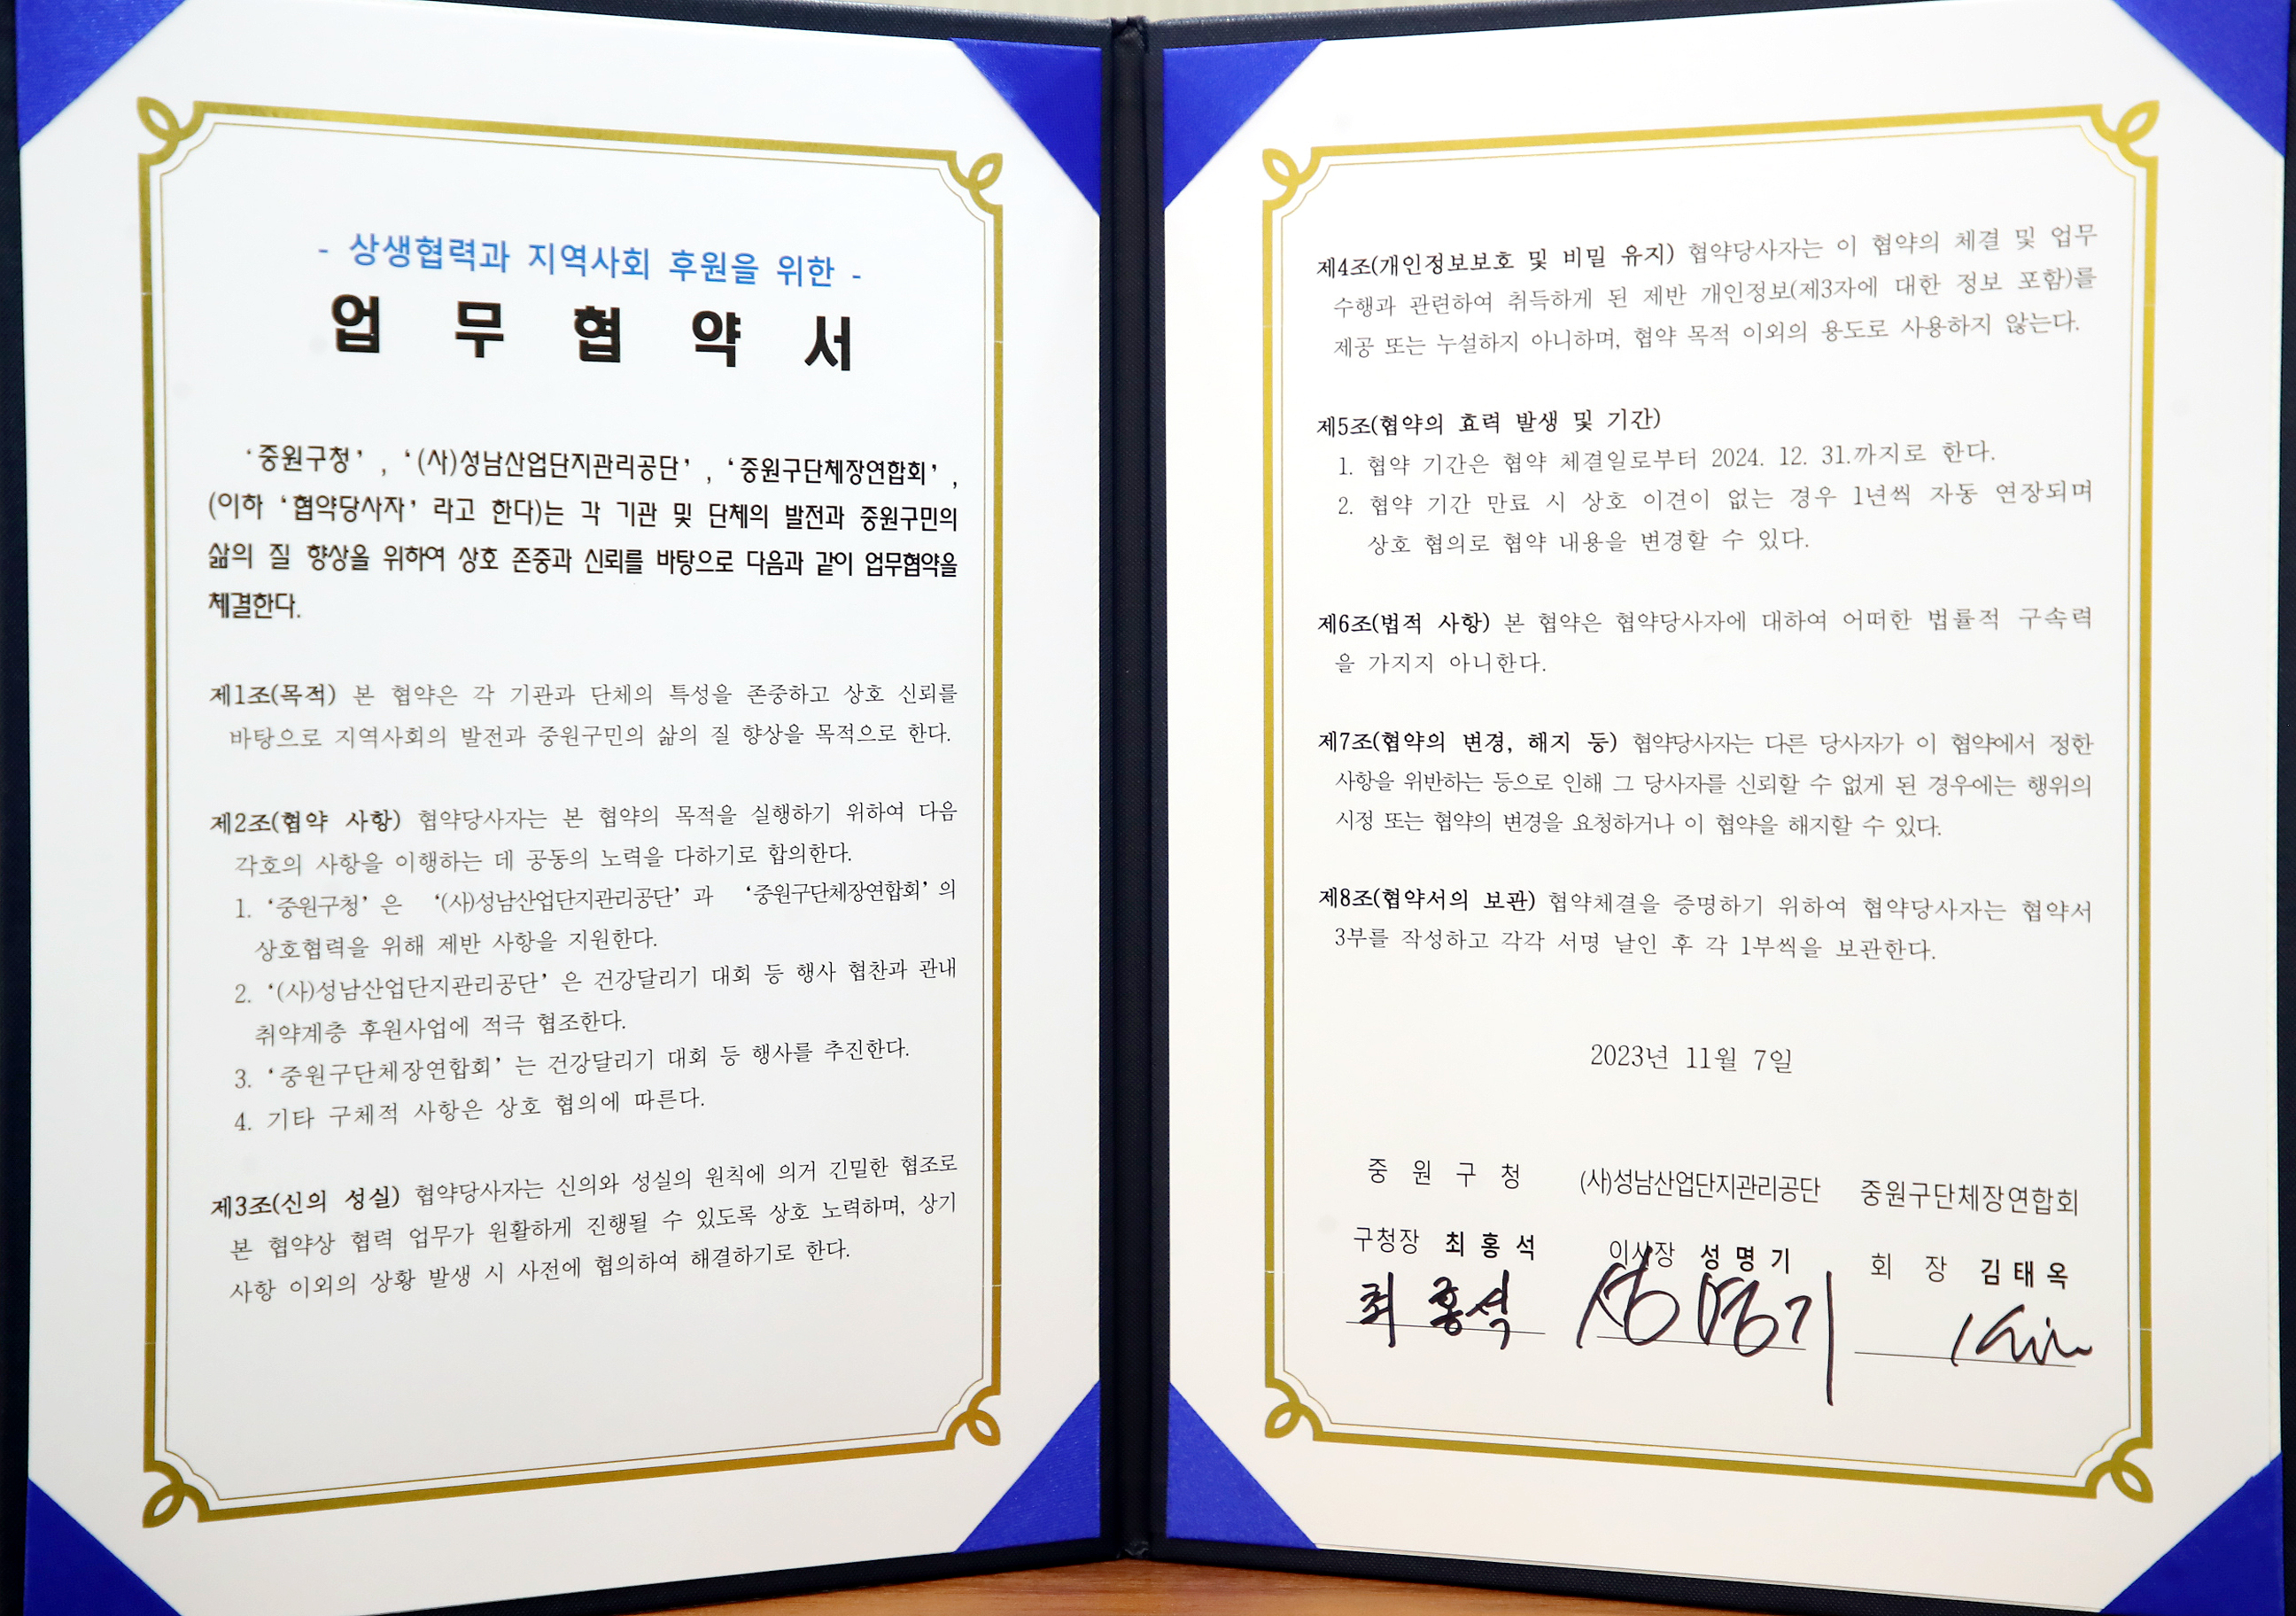 - 상생협력과 지역사회 후원을 위한 -
업 무 협 약 서
‘중원구청’, ‘(사)성남산업단지관리공단’, ‘중원구단체장연합회’,
(이하 ‘협약당사자’ 라고 한다)는 각 기관 및 단체의 발전과 중원구민의
삶의 질 향상을 위하여 상호 존중과 신뢰를 바탕으로 다음과 같이 업무협약을
체결한다.
제1조(목적) 본 협약은 각 기관과 단체의 특성을 존중하고 상호 신뢰를
바탕으로 지역사회의 발전과 중원구민의 삶의 질 향상을 목적으로 한다.
제2조(협약 사항) 협약당사자는 본 협약의 목적을 실행하기 위하여 다음
각호의 사항을 이행하는 데 공동의 노력을 다하기로 합의한다.
1. ‘중원구청’은 ‘(사)성남산업단지관리공단’과 ‘중원구단체장연합회’의
상호협력을 위해 제반 사항을 지원한다.
2. ‘(사)성남산업단지관리공단’은 건강달리기 대회 등 행사 협찬과 관내
취약계층 후원사업에 적극 협조한다.
3. ‘중원구단체장연합회’는 건강달리기 대회 등 행사를 추진한다.
4. 기타 구체적 사항은 상호 협의에 따른다.
제3조(신의 성실) 협약당사자는 신의와 성실의 원칙에 의거 긴밀한 협조로
본 협약상 협력 업무가 원활하게 진행될 수 있도록 상호 노력하며, 상기
사항 이외의 상황 발생 시 사전에 협의하여 해결하기로 한다.
제4조(개인정보보호 및 비밀 유지) 협약당사자는 이 협약의 체결 및 업무
수행과 관련하여 취득하게 된 제반 개인정보(제3자에 대한 정보 포함)를
제공 또는 누설하지 아니하며, 협약 목적 이외의 용도로 사용하지 않는다.
제5조(협약의 효력 발생 및 기간)
1. 협약 기간은 협약 체결일로부터 2024. 12. 31.까지로 한다.
2. 협약 기간 만료 시 상호 이견이 없는 경우 1년씩 자동 연장되며
상호 협의로 협약 내용을 변경할 수 있다.
제6조(법적 사항) 본 협약은 협약당사자에 대하여 어떠한 법률적 구속력
을 가지지 아니한다.
제7조(협약의 변경, 해지 등) 협약당사자는 다른 당사자가 이 협약에서 정한
사항을 위반하는 등으로 인해 그 당사자를 신뢰할 수 없게 된 경우에는 행위의
시정 또는 협약의 변경을 요청하거나 이 협약을 해지할 수 있다.
제8조(협약서의 보관) 협약체결을 증명하기 위하여 협약당사자는 협약서
3부를 작성하고 각각 서명 날인 후 각 1부씩을 보관한다.
2023년 11월 7일
중 원 구 청 (사)성남산업단지관리공단 중원구단체장연합회
구청장 최 홍 석 이사장 성 명 기 회 장 김 태 옥
최 홍석 성명기 Kim